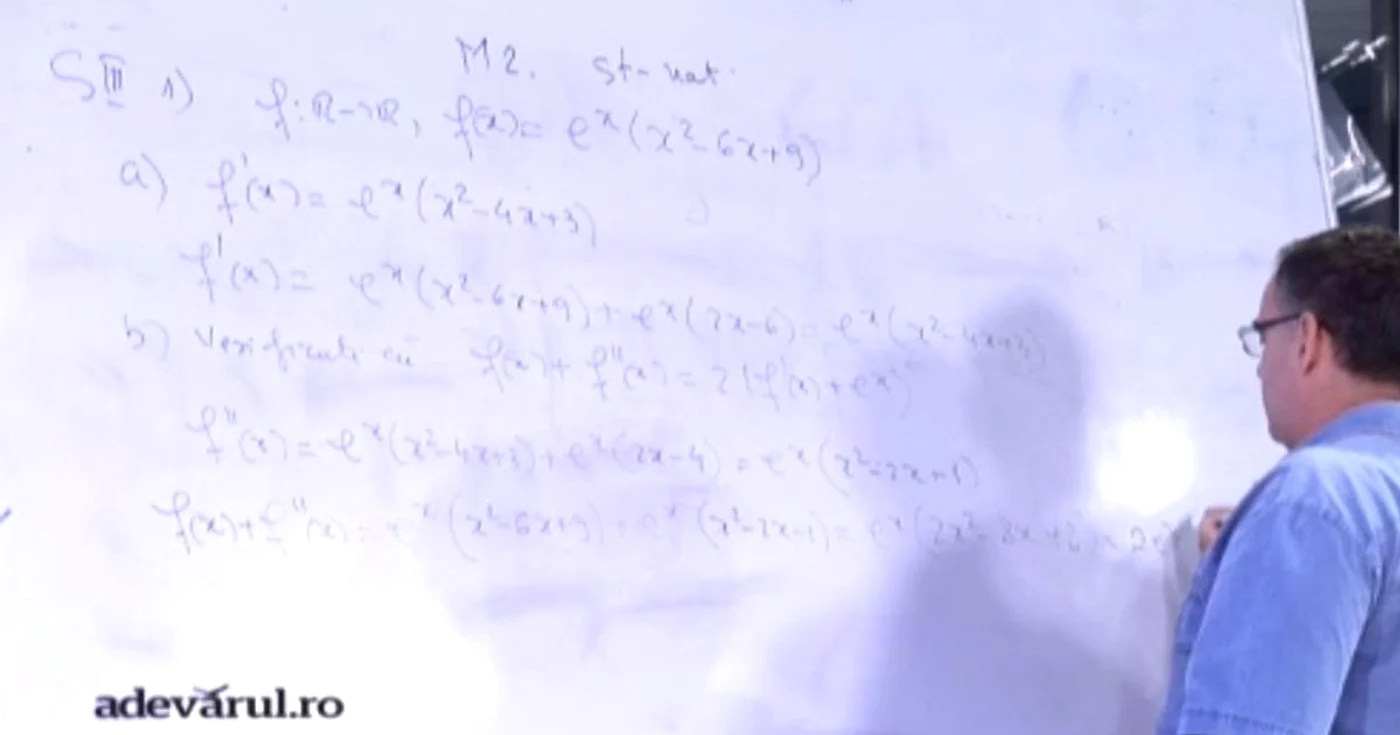 M2. St-nat.
SIII 1) f:ℝ→ℝ, f(x)= eˣ(x²-6x+9)
a) f'(x)= eˣ(x²-4x+3)
f'(x)= eˣ(x²-6x+9)+eˣ(2x-6)=eˣ(x²-4x+3)
b) Verificati că f(x)+f''(x)=2(f'(x)+eˣ)
f''(x)=eˣ(x²-4x+3)+eˣ(2x-4)=eˣ(x²-2x-1)
f(x)+f''(x)=eˣ(x²-6x+9)+eˣ(x²-2x-1)=eˣ(2x²-8x+8)=2e
adevărul.ro